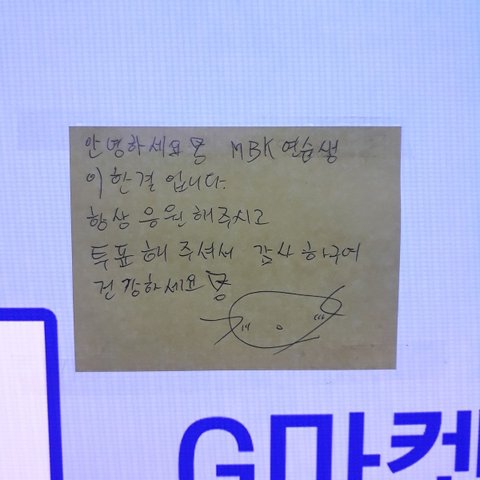 안녕하세요용 MBK연습생
이한결입니다.
항상 응원해주시고
투표해 주셔서 감사하구여
건강하세요용
G마켓